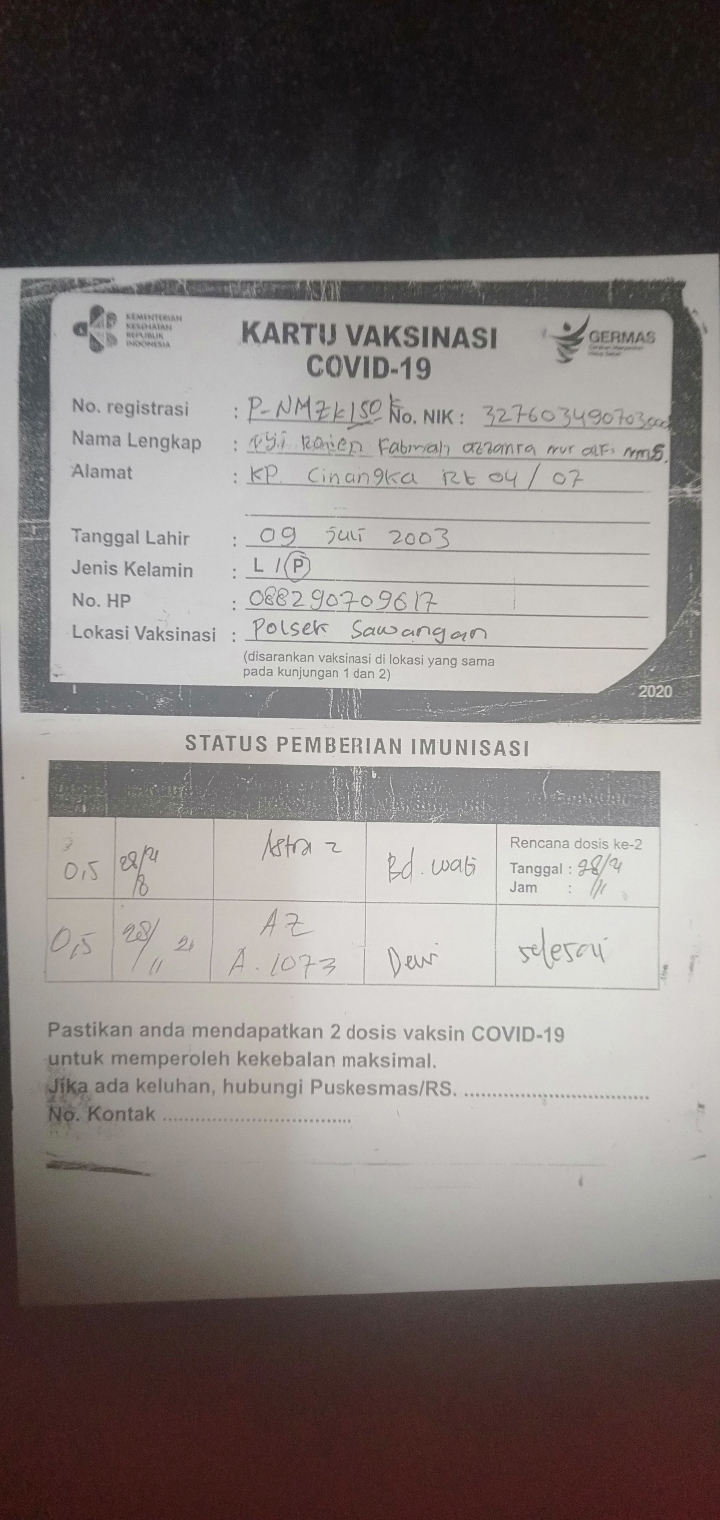 KEMENTERIAN
KESEHATAN
REPUBLIK
INDONESIA
GERMAS
KARTU VAKSINASI
COVID-19
No. registrasi : P-NMZK150K No. NIK : 327603490703
Nama Lengkap : Nyi Raden Fatimah azzahra nur
Alamat : KP. Cinangka Rt 04 / 07
Tanggal Lahir : 09 juli 2003
Jenis Kelamin : L / P
No. HP : 088290709617
Lokasi Vaksinasi : Polsek Sawangan
(disarankan vaksinasi di lokasi yang sama
pada kunjungan 1 dan 2)
2020
STATUS PEMBERIAN IMUNISASI
0,5 28/8 21 Astra z Bd. wati Rencana dosis ke-2
Tanggal : 28/21
Jam : 11
0,5 28/11 21 AZ
A. 1073 Dewi selesai
Pastikan anda mendapatkan 2 dosis vaksin COVID-19
untuk memperoleh kekebalan maksimal.
Jika ada keluhan, hubungi Puskesmas/RS. ................................
No. Kontak ..................................